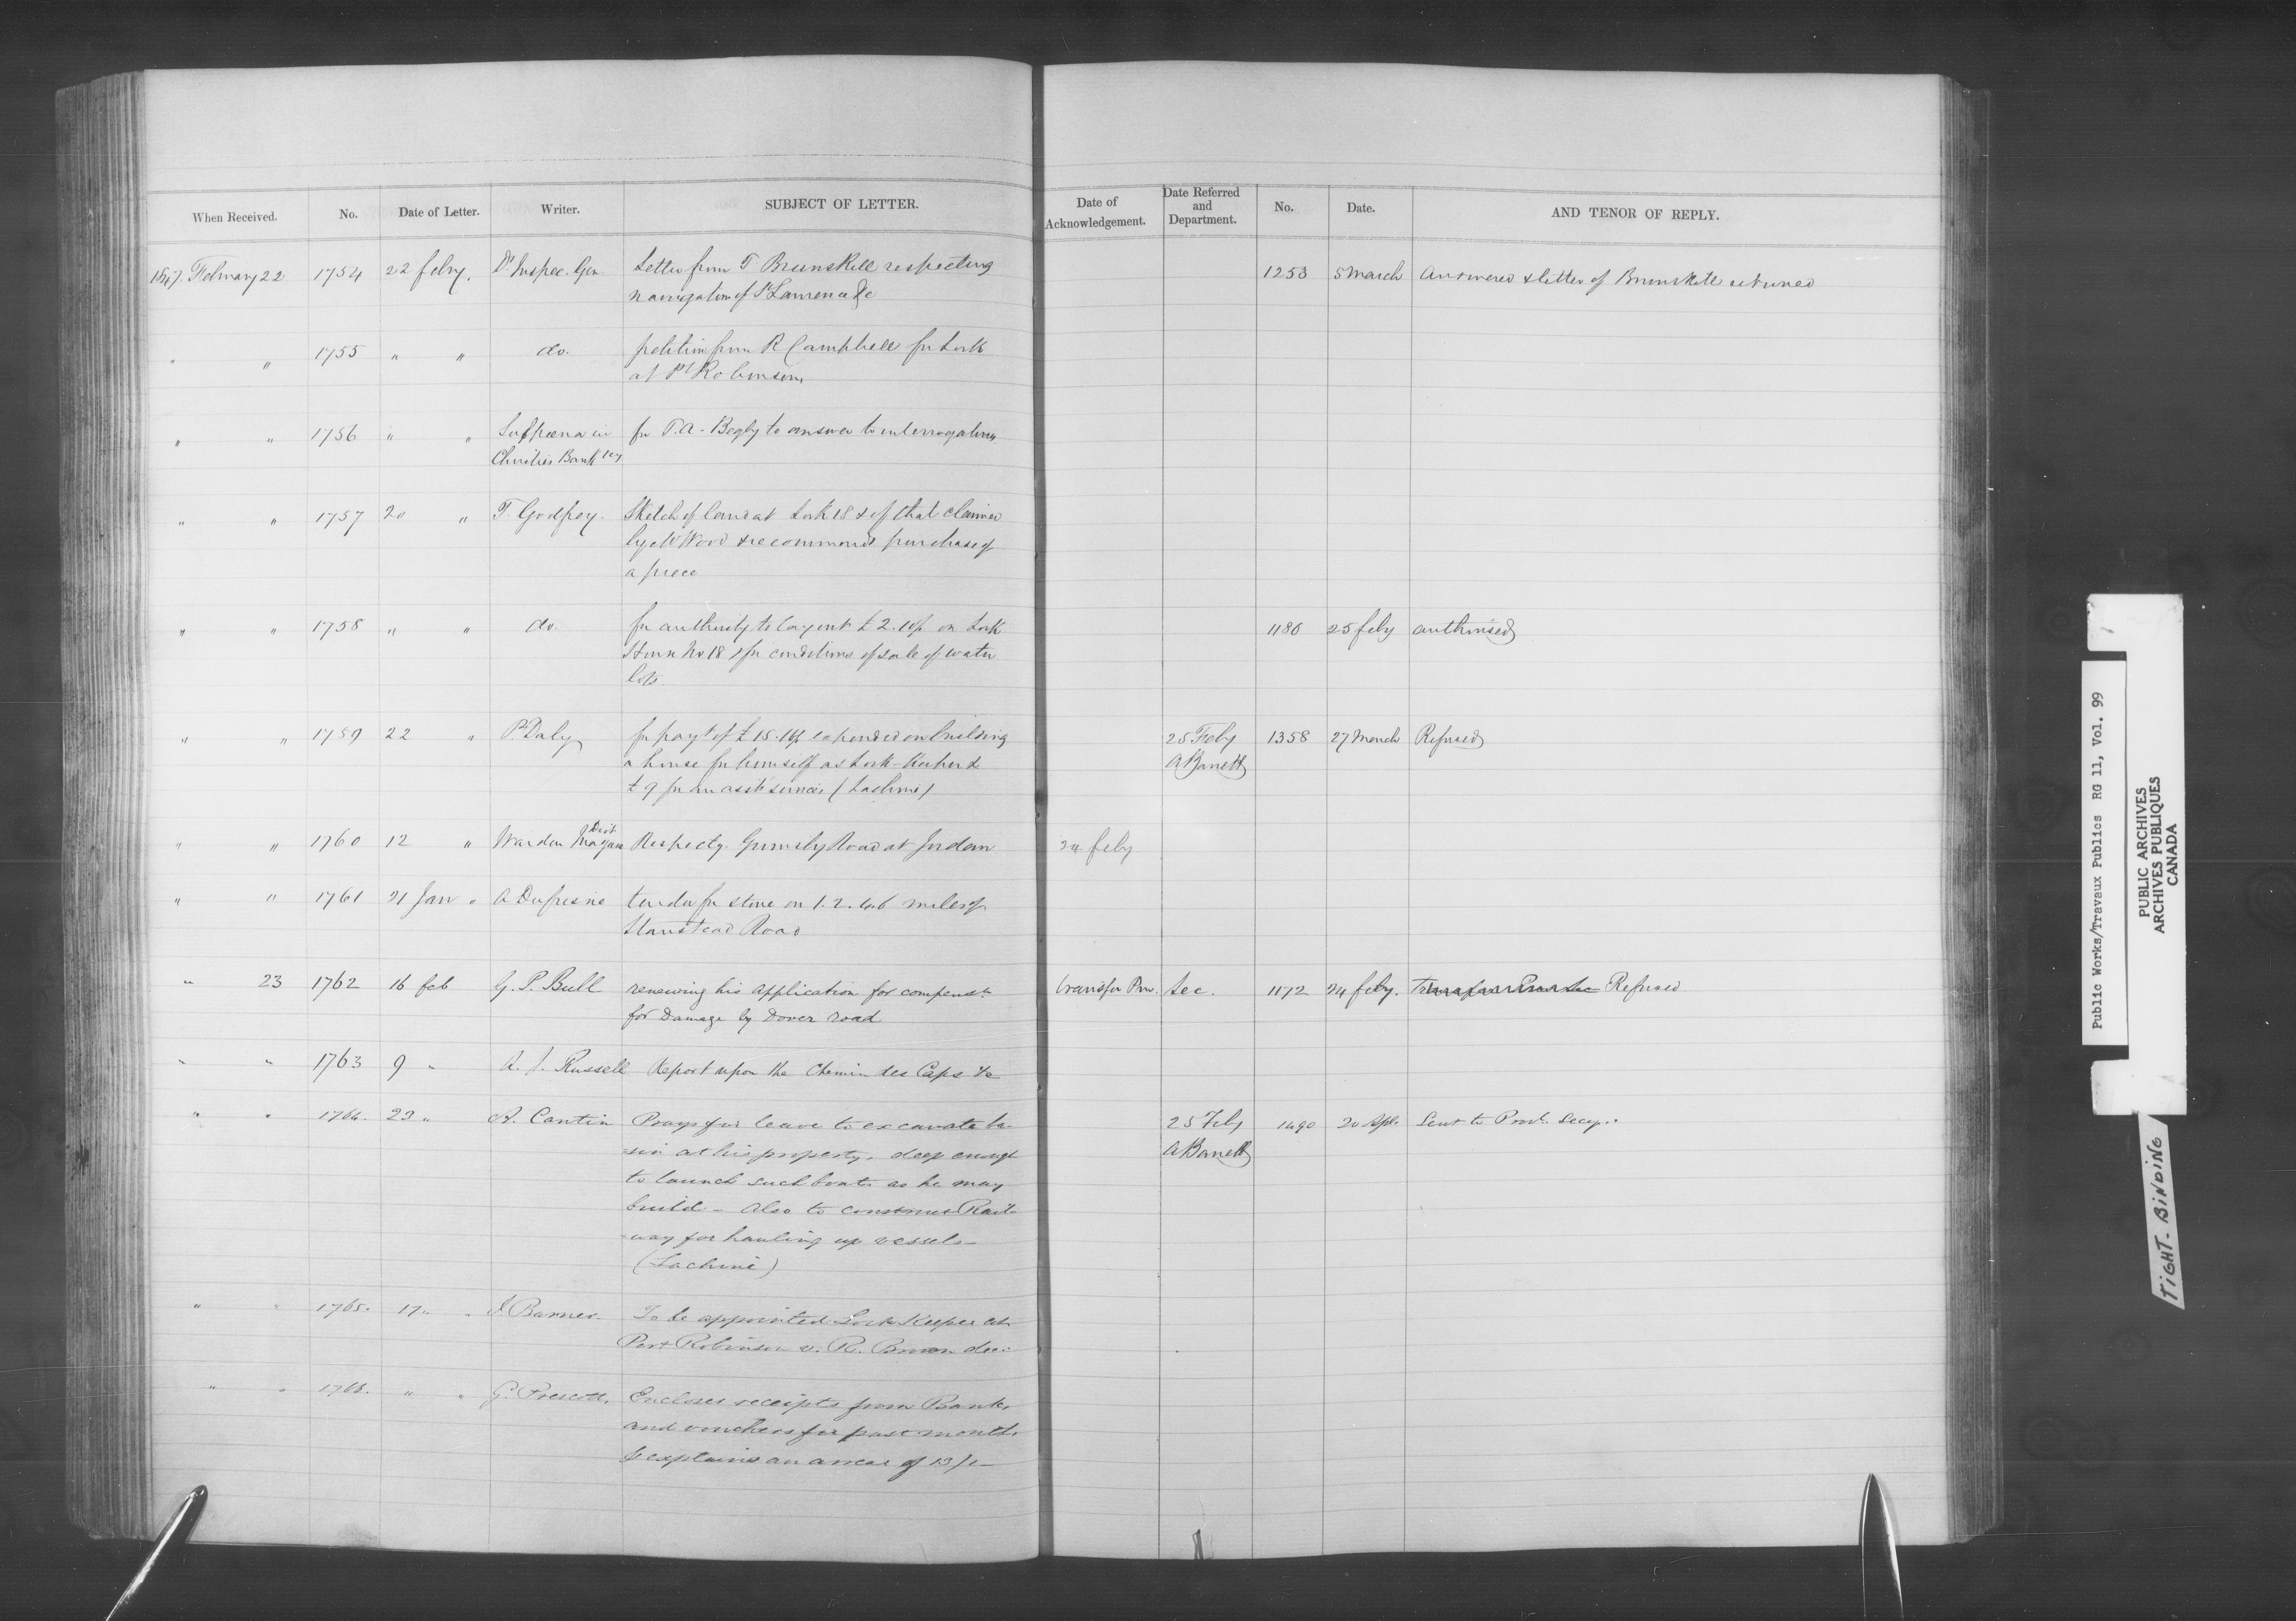 When Received. No. Date of Letter. Writer. SUBJECT OF LETTER. Date of Acknowledgement. Date Referred and Department. No. Date. AND TENOR OF REPLY.
1847. February 22 1754 22 feby. Dy Inspec. Gen Letter from T Brunskill respecting 1253 5 March Answered & letter of Brunskill returned
navigation of St Lawrence &c
" " 1755 " " do. petition from R Campbell for Lock
at Pt Robinson
" " 1756 " " Subpoena in for T.A. Begly to answer to interrogatories
Christies Banktcy
" " 1757 20 " T. Godfrey. Sketch of land at Lock 18 & of that claimed
by Wood & recommends purchase of
a piece
" " 1758 " " do. for authority to lay out £2.10/- on Lock 1186 25 feby authorised
House No 18 & for conditions of sale of water
lots
" " 1759 22 " P. Daly for payt of £15. expended on building 25 Feby 1358 27 March Refused
a house for himself as Lock-Keeper & A Barrett
£9 for services (Lachine)
" " 1760 12 " Warden Dist Niagara Respectg. Grimsby Road at Jordan 24 feby
" " 1761 21 Jan " A Dufresne tender for stone on 1. 2. 4. 6 miles of
Stanstead Road
" 23 1762 16 feb G. P. Bull renewing his application for compenst. transfer Prov. Sec. 1172 24 feby. Transfer Prov Sec Refused
for Damage by Dover road
" " 1763 9 " A. J. Russell Report upon the Chemin des Caps &c
" " 1764. 23 " A. Cantin Prays for leave to excavate ba- 25 Feby 1490 20 Apl. Sent to Provl. Secy.
-sin at his property, deep enough A Barrett
to launch such boats as he may
build - Also to construct Rail-
-way for hauling up vessels -
(Lachine)
" " 1765. 17 " " J. Barner. To be appointed Lock Keeper at
Port Robinson v. R. Brown dec.
" " " " G. Prescott. Encloses receipts from Bank,
and vouchers for past month
& explains an arrear of 13/1-
Public Works/Travaux Publics RG 11, Vol. 99
PUBLIC ARCHIVES
ARCHIVES PUBLIQUES
CANADA
TIGHT-BINDING